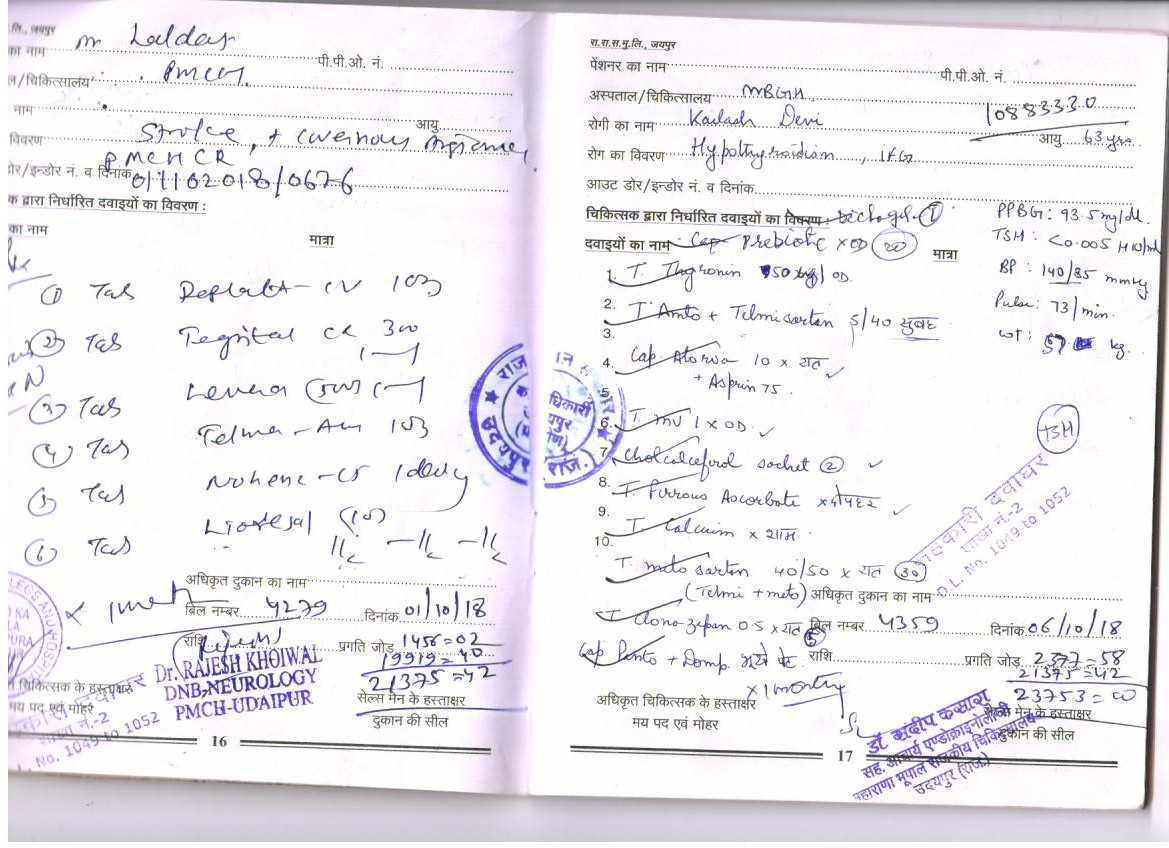 .लि., जयपुर
का नाम Mr Laldas पी.पी.ओ. नं.
ल/चिकित्सालय PMCH
नाम आयु
विवरण Stroke, + Cavernous
PMCHCR
ोर/इन्डोर नं. व दिनांक 01102018/0676
क द्वारा निर्धारित दवाइयों का विवरण :
का नाम मात्रा
① Tab Deplatt-CV 10
② Tab Tegrital CR 300
1—1
③ Tab Levera 500 1—1
④ Tab Telma-AM
⑤ Tab 1 daily
⑥ Tab Liofesal (10)
1/2 —1/2 —1/2
अधिकृत दुकान का नाम
बिल नम्बर 4279 दिनांक 01/10/18
राशि प्रगति जोड़ 1456=02
19919=40
21375=42
Dr. RAJESH KHOIWAL
DNB-NEUROLOGY
PMCH-UDAIPUR
चिकित्सक के हस्ताक्षर सेल्स मेन के हस्ताक्षर
मय पद एवं मोहर दुकान की सील
शाखा नं.-2
No. 1049 to 1052
16
रा.रा.स.मु.लि., जयपुर
पेंशनर का नाम पी.पी.ओ. नं.
अस्पताल/चिकित्सालय MBGH 10883330
रोगी का नाम Kailash Devi आयु 63 yrs
रोग का विवरण Hypothyroidism, IFG
आउट डोर/इन्डोर नं. व दिनांक
चिकित्सक द्वारा निर्धारित दवाइयों का विवरण ①
PPBG: 93.5 mg/dL
TSH: <0.005
BP: 140/85 mmHg
Pulse: 73/min.
wt: 57 kg.
दवाइयों का नाम Cap Prebiotic x OD (20) मात्रा
1. T. Thyronin 50 OD
2. T. Amlo + Telmisartan 5/40 सुबह
3.
4. Cap. Atorva 10 x रात
+ Asprin 75
5.
6. T. MV 1 x OD
TSH
7. Cholcalciferol sachet ②
8. T. Ferrous Ascorbate x दोपहर
9. T. Calcium x शाम
10.
T. meto sartan 40/50 x रात (30)
(Telmi + meto) अधिकृत दुकान का नाम
T. Clonazepam 0.5 x रात बिल नम्बर 4359 दिनांक 06/10/18
⑤
Cap Panto + Domp. भूखे पेट राशि प्रगति जोड़ 2377=58
21375=42
x 1 month 23753=00
सहकारी दवाघर
शाखा नं.-2
D.L. No. 1049 to 1052
अधिकृत चिकित्सक के हस्ताक्षर सेल्स मेन के हस्ताक्षर
मय पद एवं मोहर दुकान की सील
डॉ. संदीप कंसारा
सह. आचार्य एण्डोक्राइनोलॉजी
महाराणा भूपाल राजकीय चिकित्सालय
उदयपुर (राज.)
17